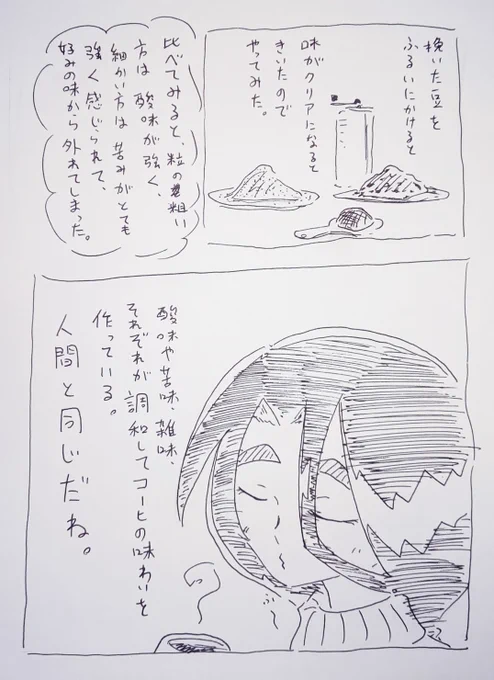 挽いた豆を
ふるいにかけると
味がクリアになると
きいたので
やってみた。
比べてみると、粒の粗い
方は酸味が強く、
細かい方は苦みがとても
強く感じられて、
好みの味から外れてしまった。
酸味や苦味、雑味、
それぞれが調和してコーヒの味わいを
作っている。
人間と同じだね。